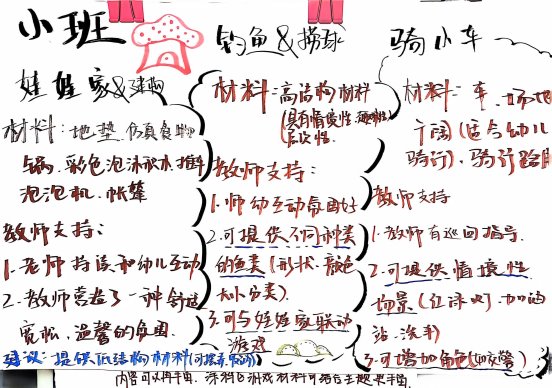 小班
娃娃家&建构
材料:地垫、仿真食物
锅、彩色泡沫积木推车
泡泡机、帐篷
教师支持:
1.老师持误和幼儿互动
2.教师营造了一种舒适
宽松、温馨的氛围
建议:提供低结构材料
钓鱼&捞球
材料:高结构材料
层次性.
教师支持:
1.师幼互动氛围好
2.可提供不同种类
的鱼类(形状、颜色
大小分类).
3.可与娃娃家联动
游戏
骑小车
材料:车、场地
(适合幼儿
骑行)、骑行路
教师支持
1.教师有巡回指导.
2.可提供情境性
场景(红绿灯、加油
站、洗车)
3.可增加角色(如交警)
内容可以再丰富,
游戏材料可结合主题来丰富.